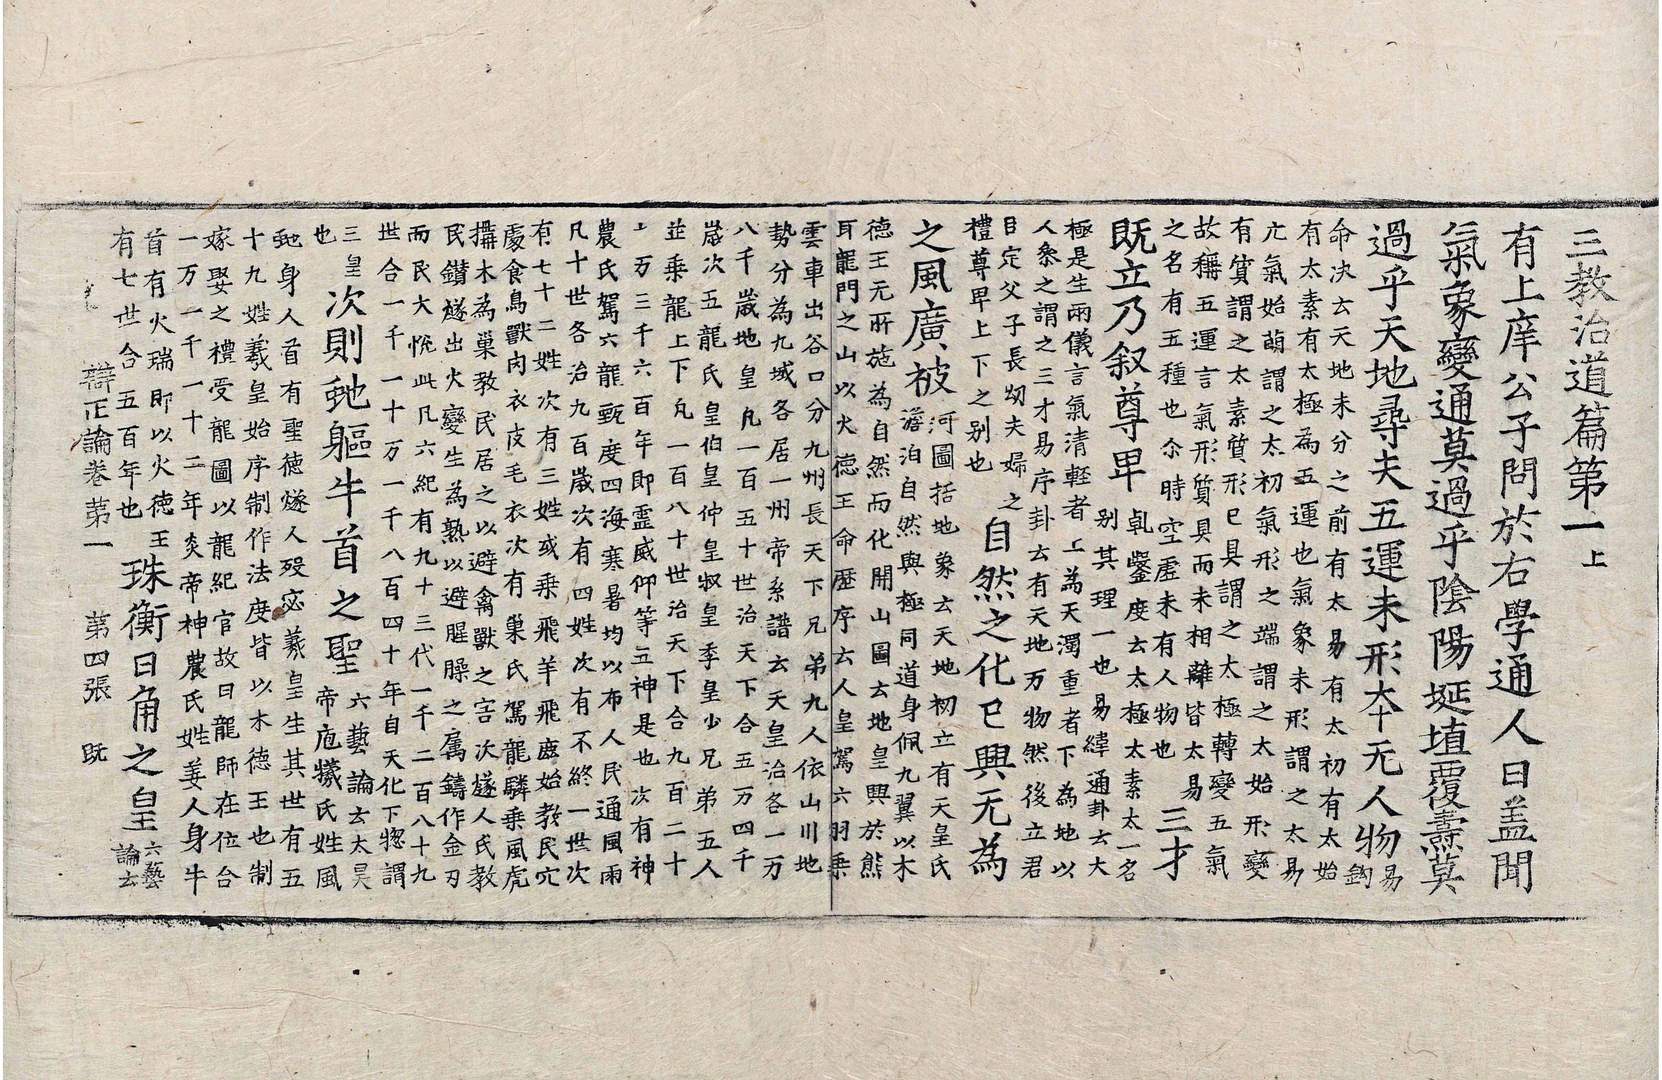 三教治道篇第一上
有上庠公子問於右學通人曰盖聞
氣象變通莫過乎陰陽埏埴覆燾莫
過乎天地尋夫五運未形夲无人物易
鉤
命决云天地未分之前有太易有太初有太始
有太素有太極為五運也氣象未形謂之太易
元氣始萌謂之太初氣形之端謂之太始形變
有質謂之太素質形已具謂之太極轉變五氣
故稱五運言氣形質具而未相離皆太易
之名有五種也尒時空虛未有人物也三才
既立乃叙尊卑軋鑿度云太極太素太一名
别其理一也易緯通卦云大
極是生兩儀言氣清輕者上為天濁重者下為地以
人叅之謂之三才易序卦云有天地万物然後立君
臣定父子長幼夫婦之
禮尊卑上下之别也自然之化已興无為
之風廣被河圖括地象云天地初立有天皇氏
澹泊自然與極同道身佩九翼以木
徳王无所施為自然而化開山圖云地皇興於熊
耳龍門之山以火徳王命歴序云人皇駕六羽乗
雲車出谷口分九州長天下兄弟九人依山川地
勢分為九域各居一州帝系譜云天皇治各一万
八千歲地皇凡一百五十世治天下合五万四千
歲次五龍氏皇伯皇仲皇叔皇季皇少兄弟五人
並乗龍上下凡一百八十世治天下合九百二十
一万三千六百年即霊威仰等五神是也次有神
農氏駕六龍甄度四海寒暑均以布人民通風雨
凡十世各治九百歲次有四姓次有不終一世次
有七十二姓次有三姓或乗飛羊飛鹿始教民穴
處食鳥獸肉衣皮毛衣次有巢氏駕龍驎乗風虎
搆木為巢教民居之以避禽獸之害次燧人氏教
民鑽燧出火變生為熟以避腥臊之属鑄作金刃
而民大恱此凡六紀有九十三代一千二百八十九
世合一千一十万一千八百四十年自天化下惣謂
三皇
也次則虵軀牛首之聖六藝論云太昊
帝庖犧氏姓風
虵身人首有聖徳燧人殁宓羲皇生其世有五
十九姓羲皇始序制作法度皆以木徳王也制
嫁娶之禮受龍圖以龍紀官故曰龍師在位合
一万一千一十二年炎帝神農氏姓姜人身牛
首有火瑞即以火徳王
有七世合五百年也珠衡日角之皇六藝
論云
辯正論卷苐一 第四張 既